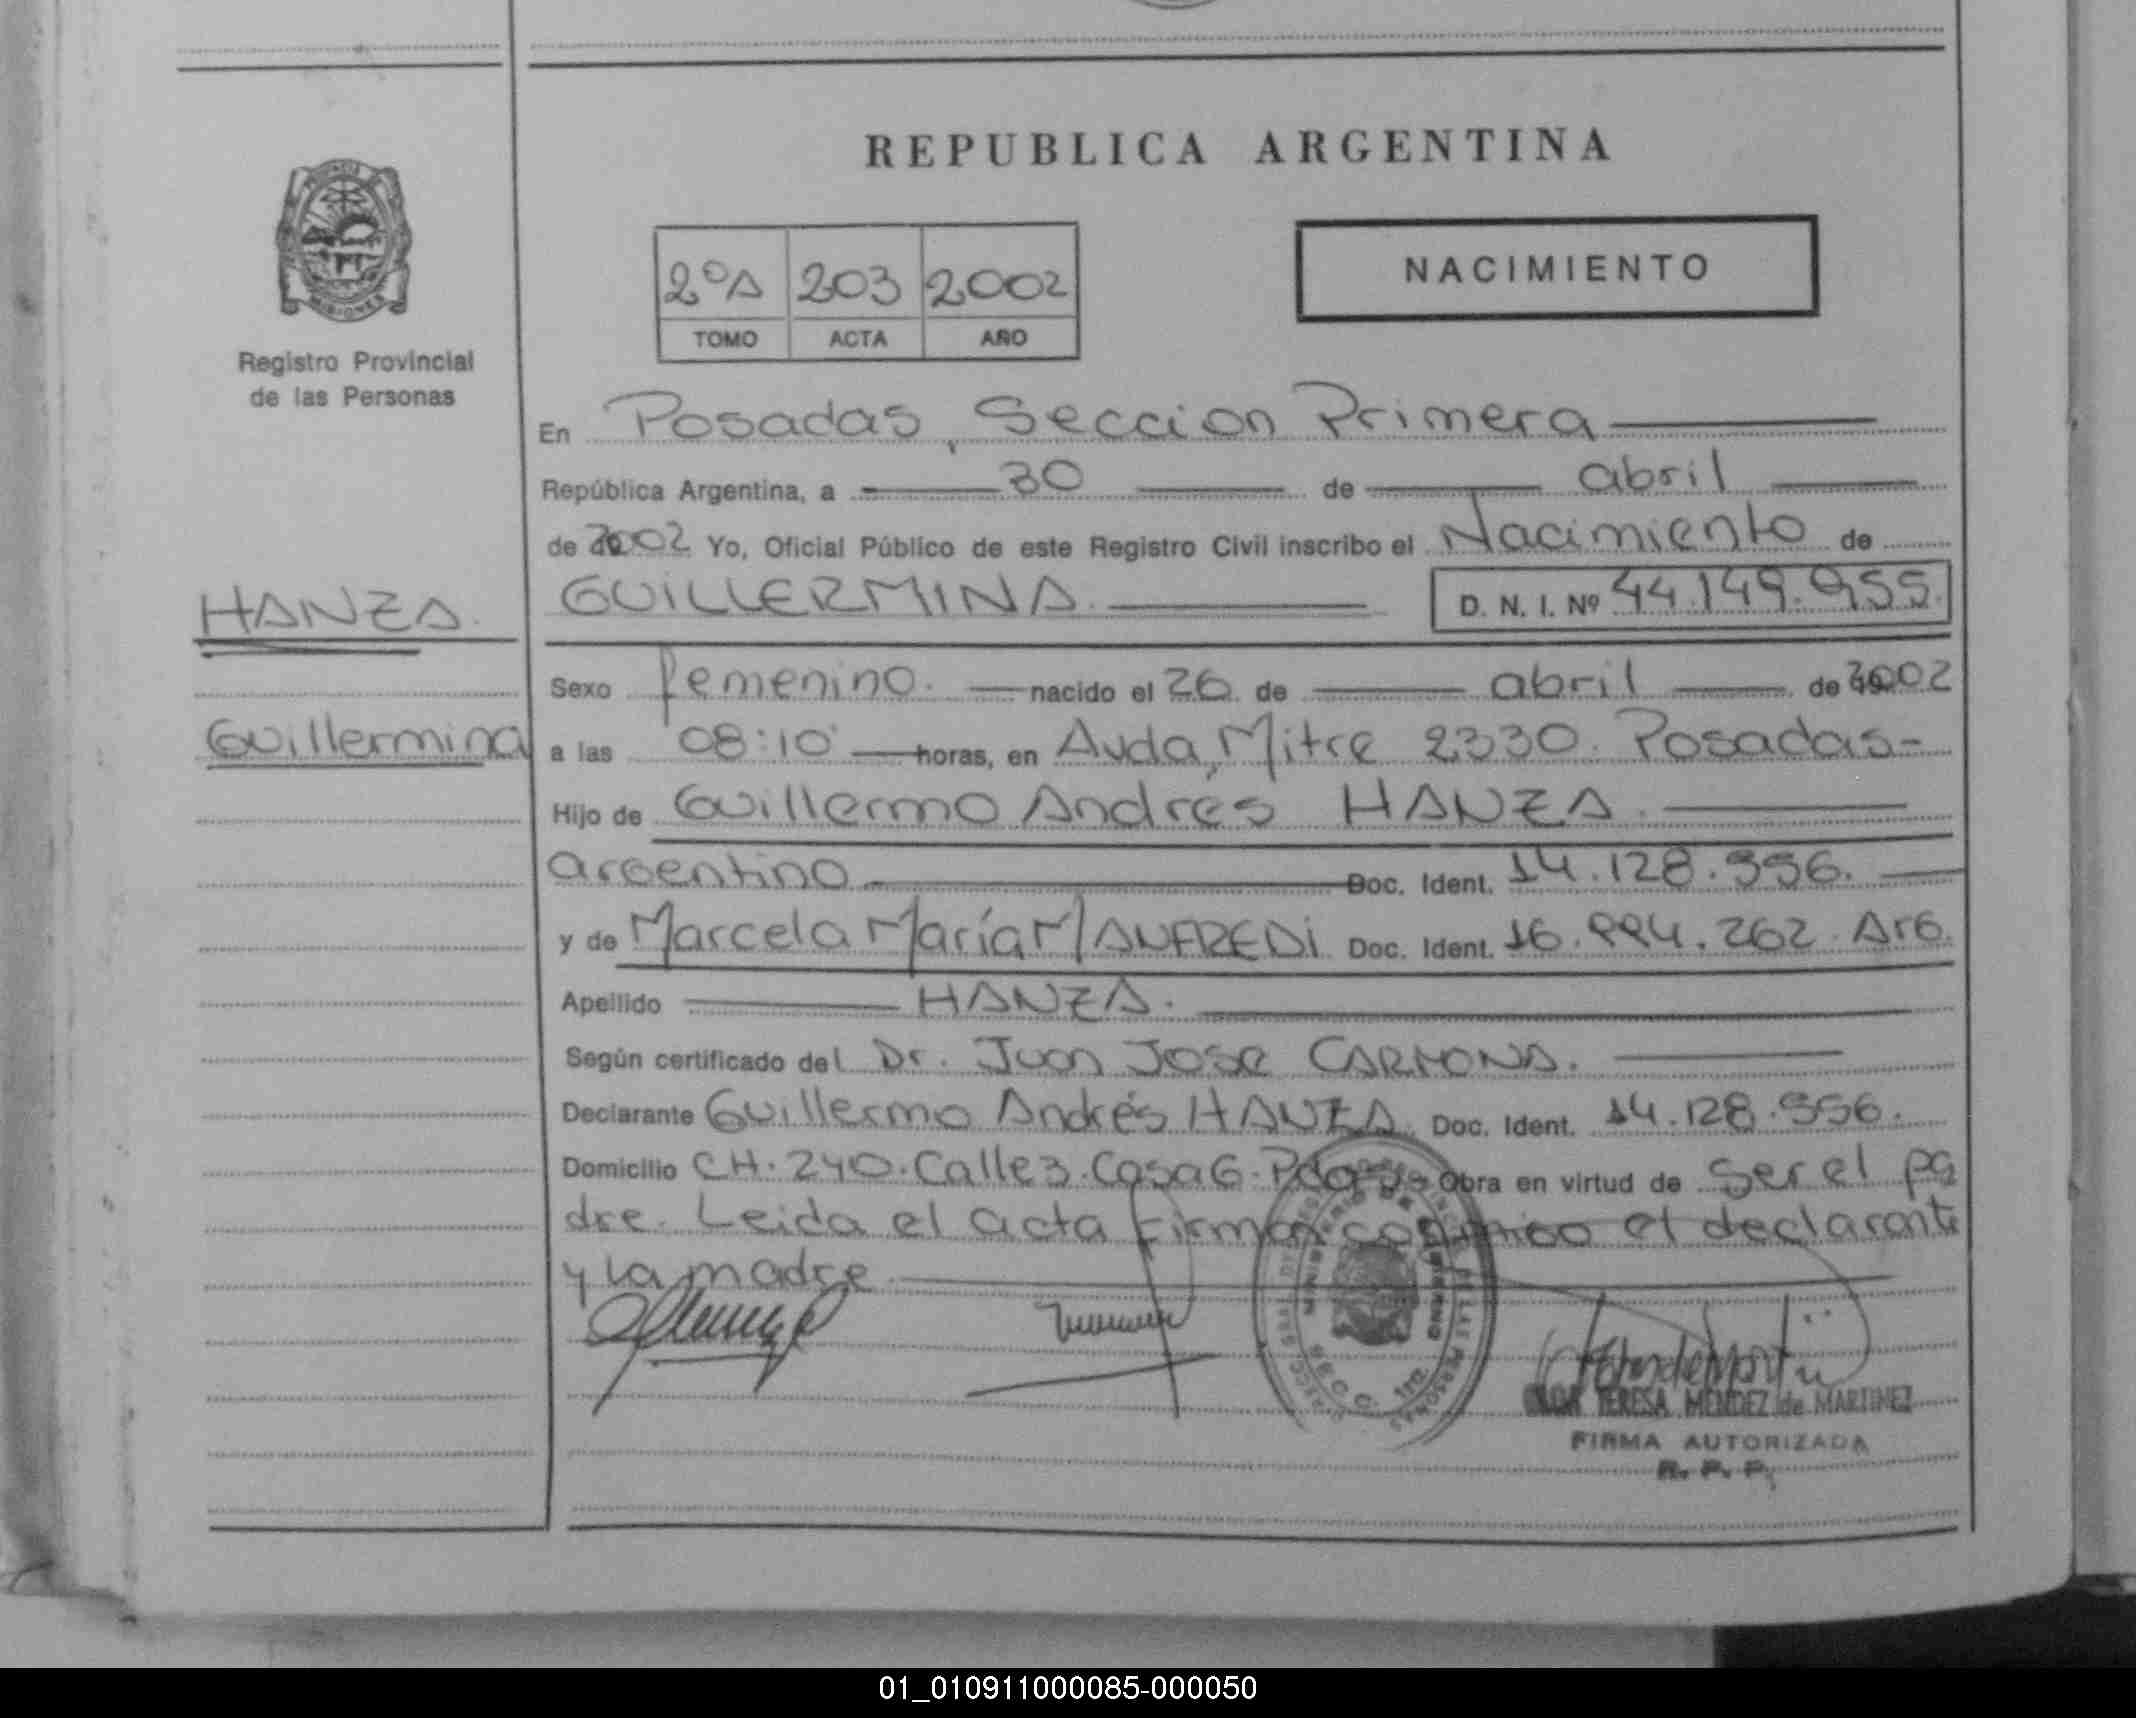 REPUBLICA ARGENTINA
2ºA 203 2002
TOMO ACTA AÑO
NACIMIENTO
Registro Provincial
de las Personas
En Posadas, Seccion Primera
República Argentina, a 30 de abril
de 2002 Yo, Oficial Público de este Registro Civil inscribo el Nacimiento de
GUILLERMINA. D. N. I. Nº 44.149.955.
HANZA.
Guillermina
Sexo femenino. nacido el 26 de abril de 2002
a las 08:10 horas, en Avda, Mitre 2330. Posadas-
Hijo de Guillermo Andres HANZA.
argentino Doc. Ident. 14.128.556.
y de Marcela María MANFREDI Doc. Ident. 16.994.262. Arg.
Apellido HANZA.
Según certificado del Dr. Juan Jose CARMONA.
Declarante Guillermo Andrés HANZA. Doc. Ident. 14.128.556.
Domicilio CH. 240. Calle 3. Casa 6. Pdas. Obra en virtud de ser el pa
dre. Leida el acta firman conmigo el declarante
y la madre
TERESA MENDEZ de MARTINEZ
FIRMA AUTORIZADA
R. P. P.
01_010911000085-000050